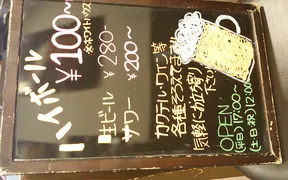 ハイボール
¥100〜
※ホワイトハウス
生ビール ¥280
サワー ¥200〜
カクテル・ワイン等
各種そろえてます
気軽にお立ち寄り
下さい
OPEN
(平日) 17:00〜
(土日祝) 12:00